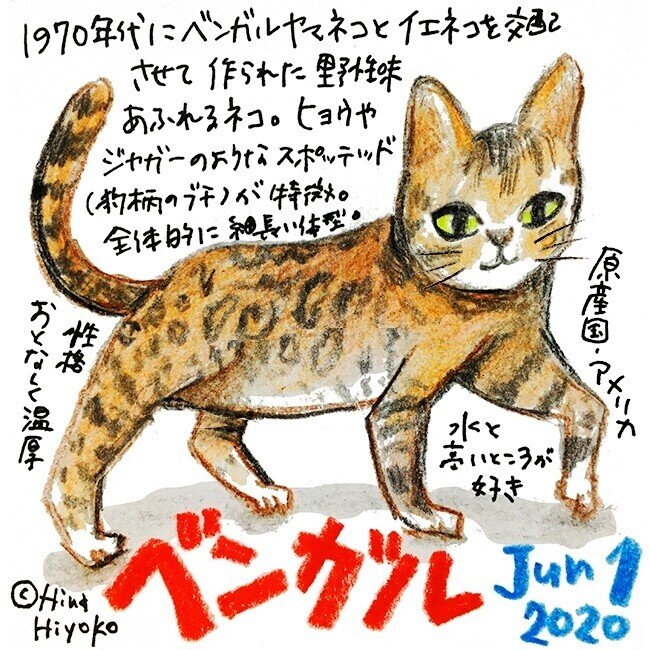 1970年代にベンガルヤマネコとイエネコを交配
させて作られた野性味
あふれるネコ。ヒョウや
ジャガーのようなスポッテッド
(豹柄のブチ)が特徴。
全体的に細長い体型。
原産国・アメリカ
性格
おとなしく温厚
水と
高いところが
好き
ベンガル
Jun 1
2020
©Hina
Hiyoko